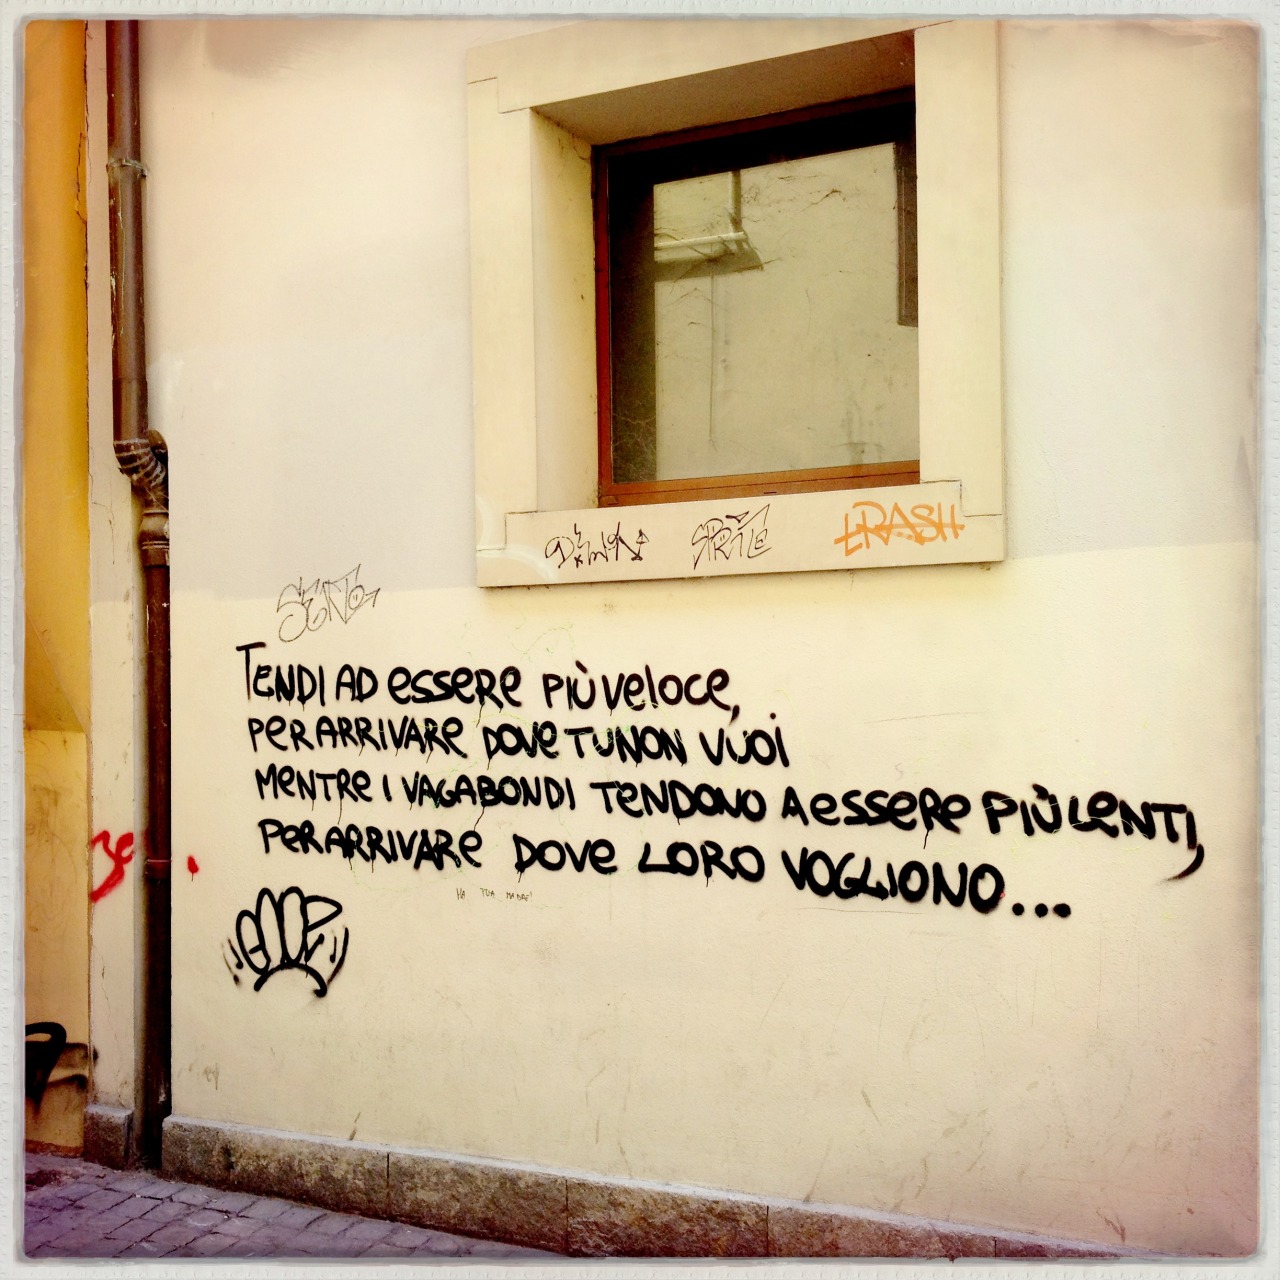 SPRITE
TRASH
TENDI AD ESSERE PIÙ VELOCE,
PER ARRIVARE DOVE TU NON VUOI
MENTRE I VAGABONDI TENDONO A ESSERE PIÙ LENTI,
PER ARRIVARE DOVE LORO VOGLIONO...
HA TUA MADRE!